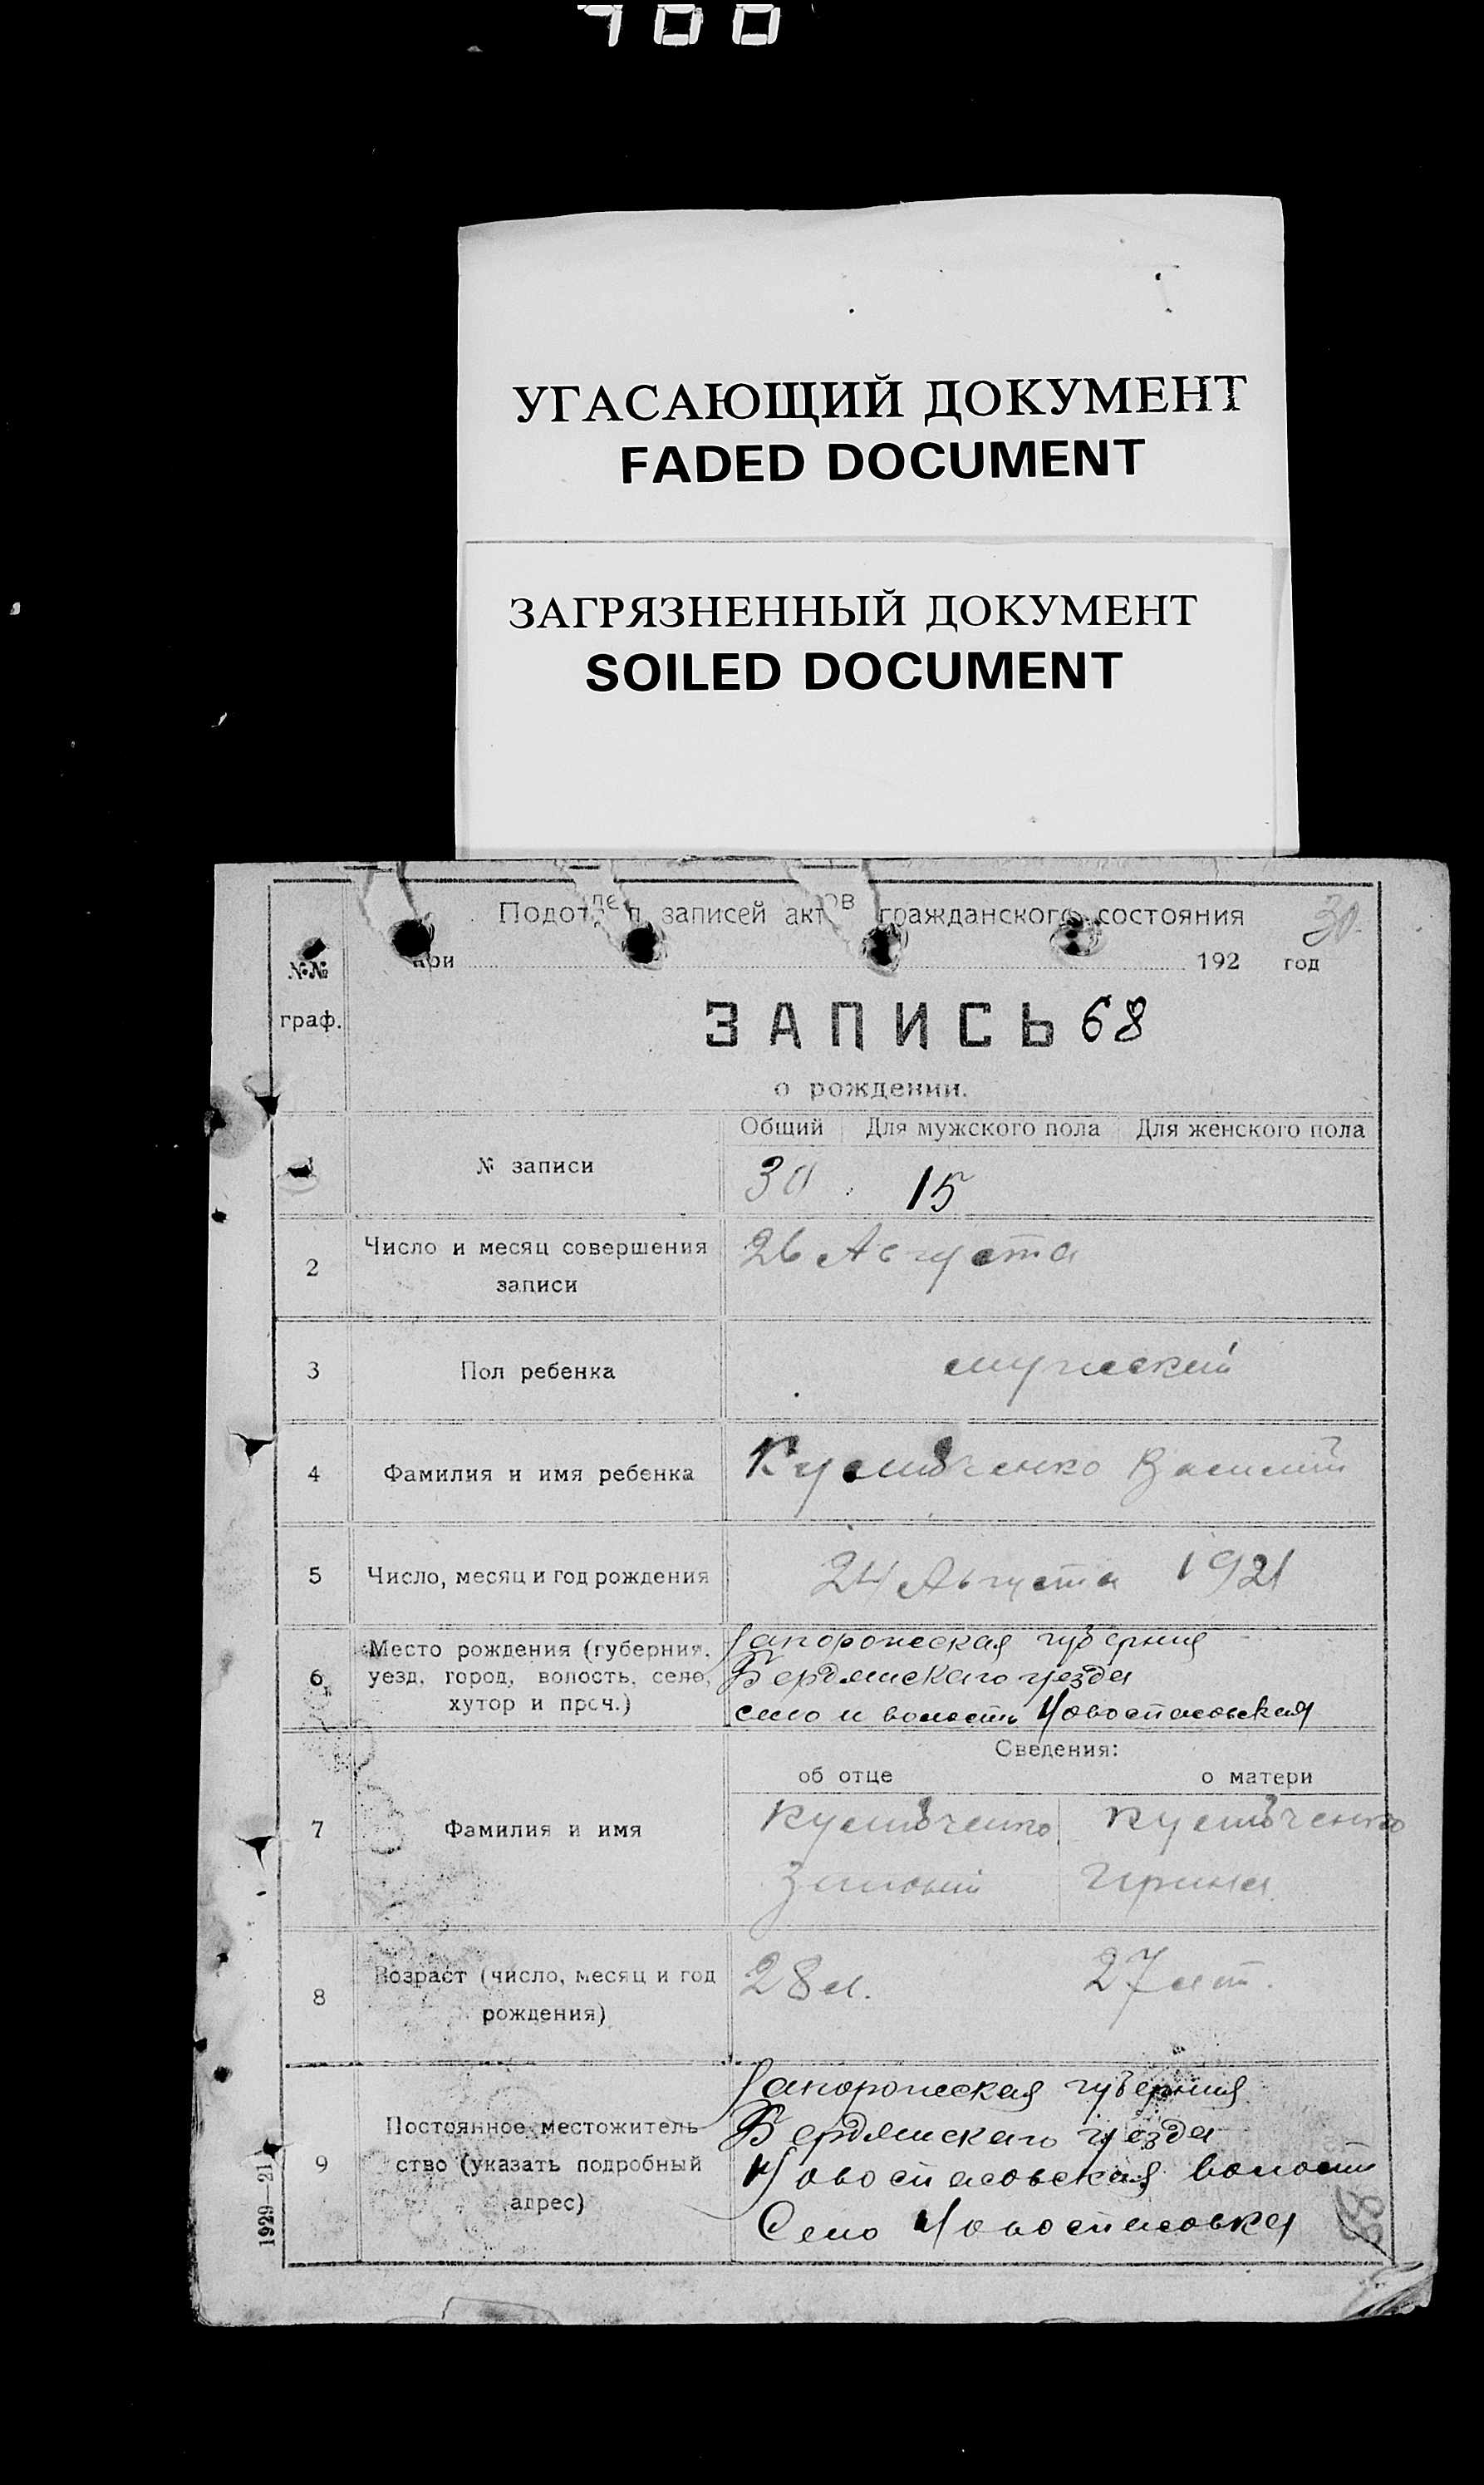 УГАСАЮЩИЙ ДОКУМЕНТ
FADED DOCUMENT
ЗАГРЯЗНЕННЫЙ ДОКУМЕНТ
SOILED DOCUMENT
записей актов гражданского состояния
30
при 192 год
№№
граф.
ЗАПИСЬ 68
о рождении.
Общий Для мужского пола Для женского пола
№ записи 30 15
2 Число и месяц совершения записи 26 Августа
3 Пол ребенка мужеский
4 Фамилия и имя ребенка Василий
5 Число, месяц и год рождения 24 Августа 1921
6 Место рождения (губерния, Запорожская губерния
уезд, город, волость, село, Бердянскаго уезда
хутор и проч.) село и волость Новоспасовская
Сведения:
об отце о матери
7 Фамилия и имя
Ирина
8 Возраст (число, месяц и год рождения) 28 л. 27 лет.
Запорожская губерния
9 Постоянное местожитель- Бердянскаго уезда
ство (указать подробный Новоспасовская волость
адрес) Село Новоспасовка
68